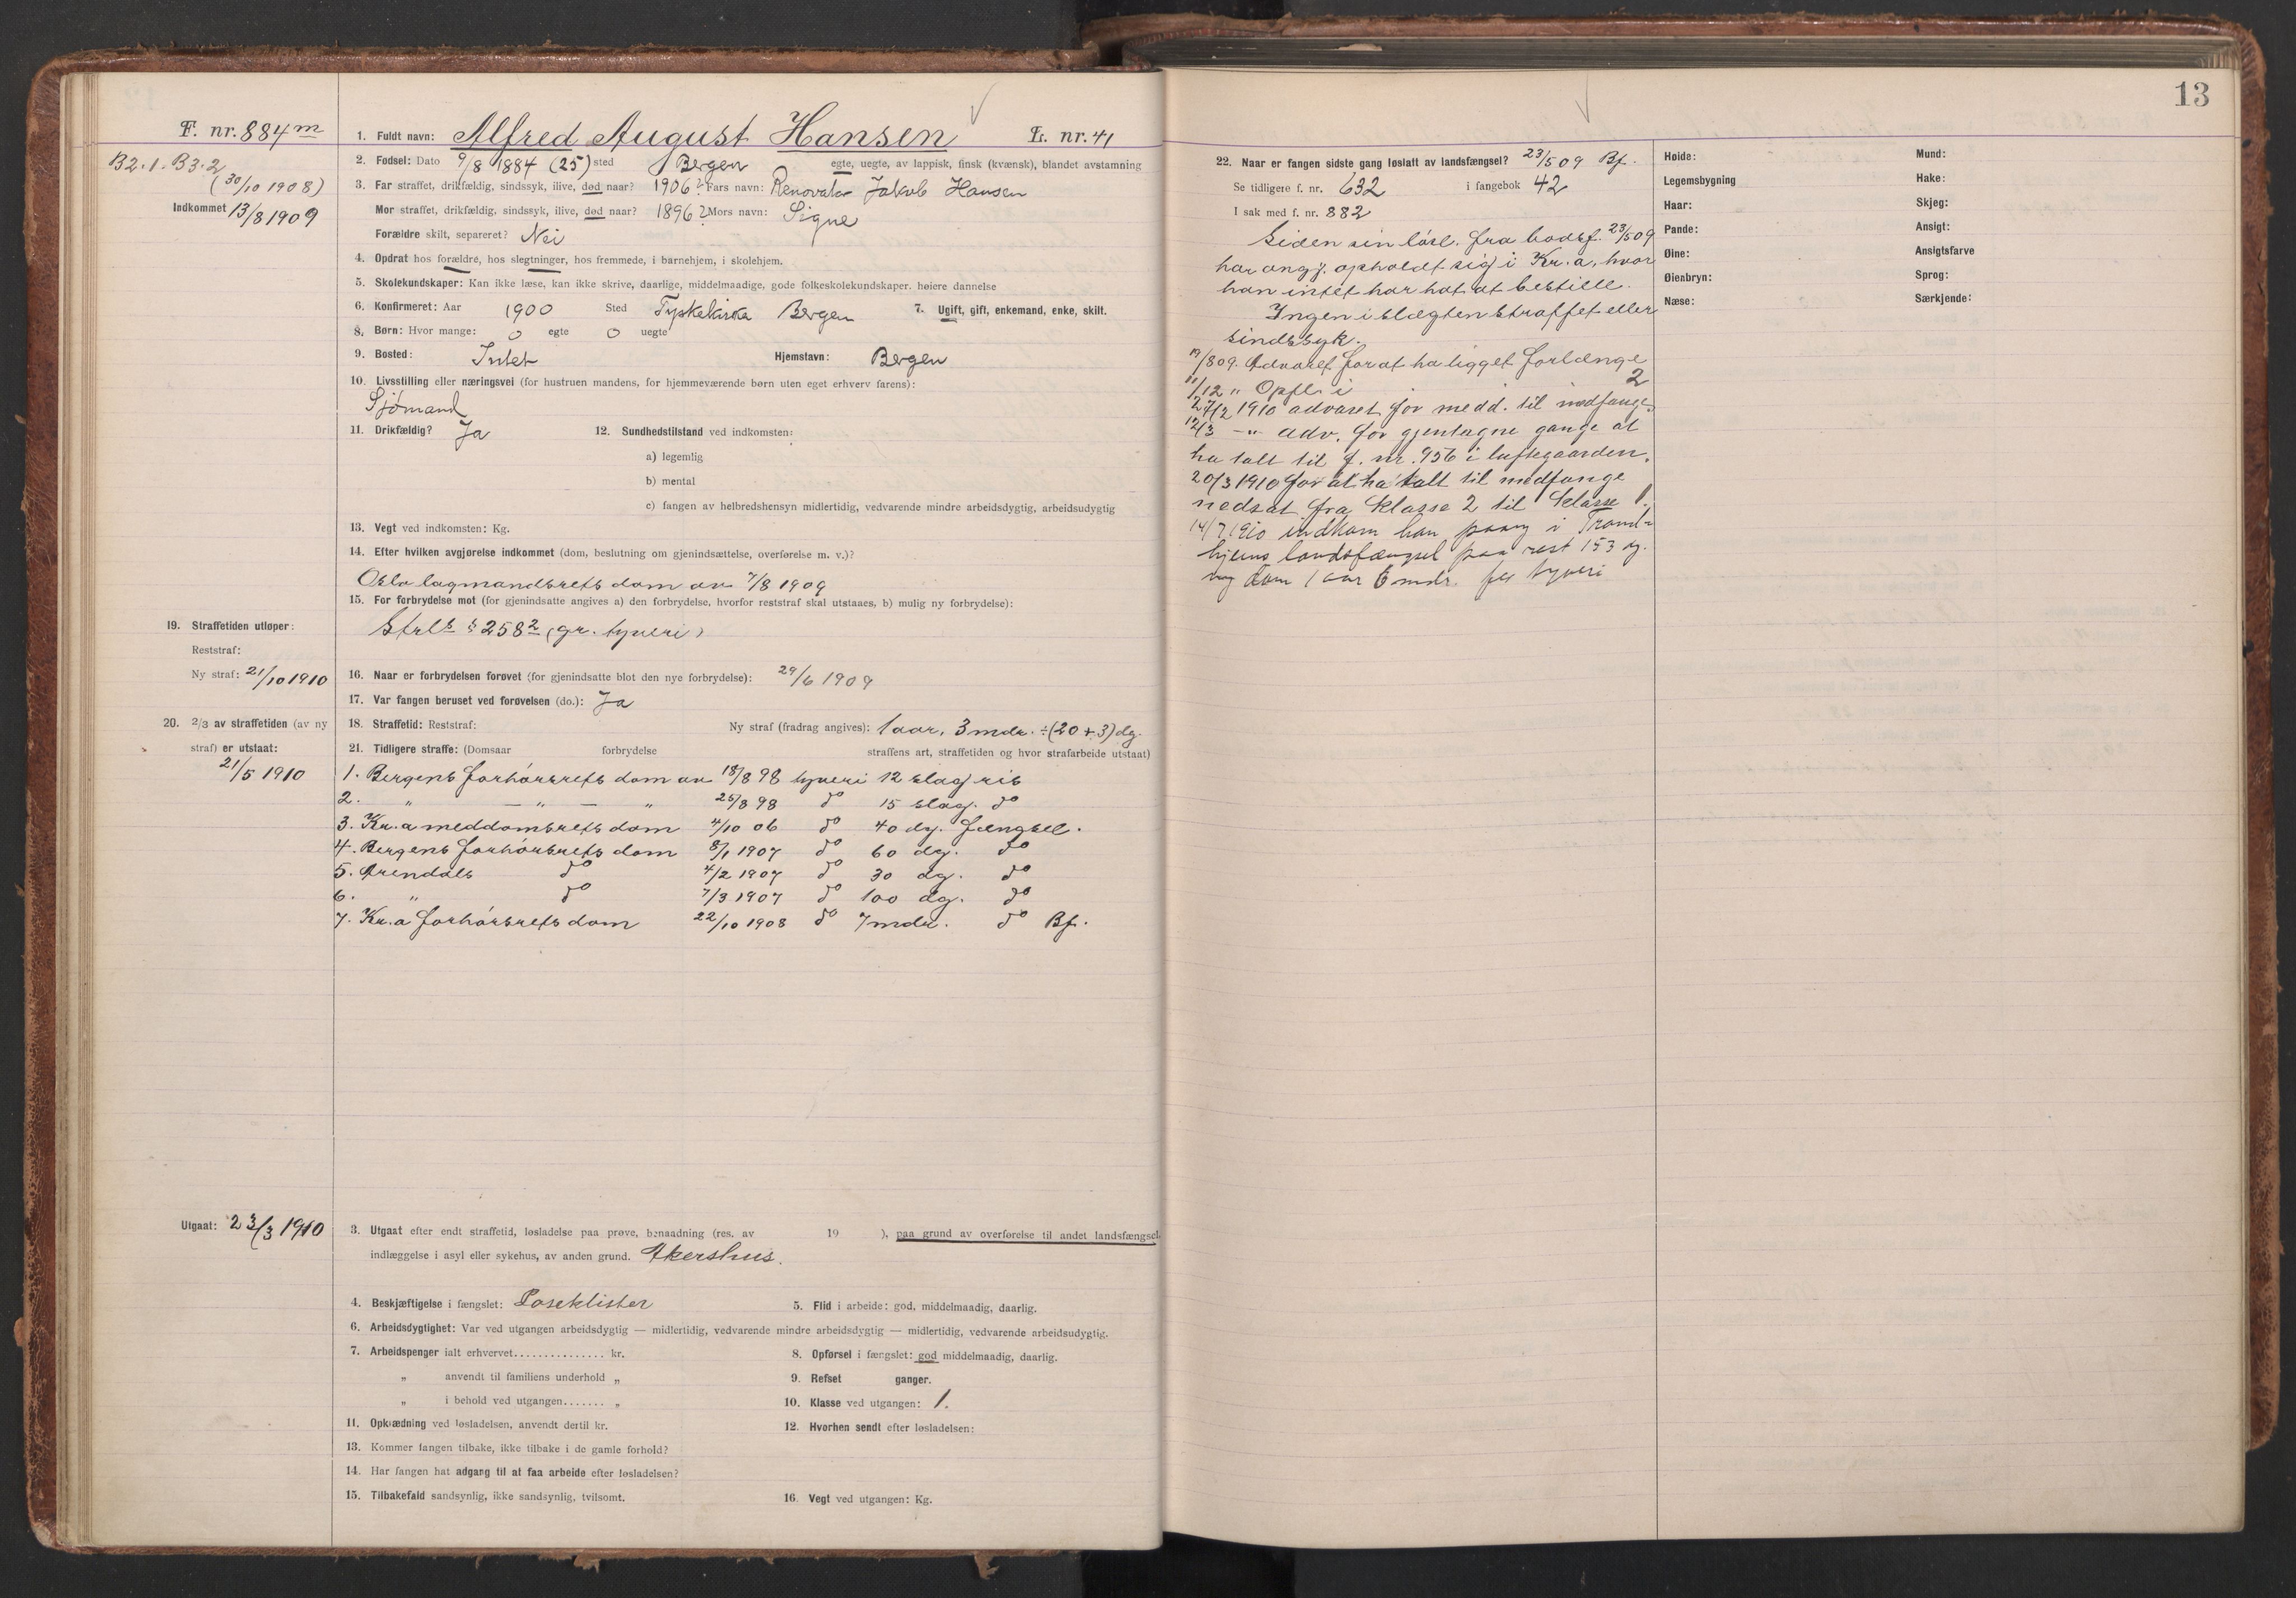 13
F. nr. 884 m
1. Fuldt navn: Alfred August Hansen L. nr. 41
B2.1. B3.2
(30/10 1908)
Indkommet 13/8 1909
2. Fødsel: Dato 9/8 1884 (25) sted Bergen egte, uegte, av lappisk, finsk (kvænsk), blandet avstamning
3. Far straffet, drikfældig, sindssyk, ilive, død naar? 1906? Fars navn: Renovatør Jakob Hansen
Mor straffet, drikfældig, sindssyk, ilive, død naar? 1896? Mors navn: Signe
Forældre skilt, separeret? Nei
4. Opdrat hos forældre, hos slegtninger, hos fremmede, i barnehjem, i skolehjem.
5. Skolekundskaper: Kan ikke læse, kan ikke skrive, daarlige, middelmaadige, gode folkeskolekundskaper. høiere dannelse
6. Konfirmeret: Aar 1900 Sted Tyskekirke Bergen 7. Ugift, gift, enkemand, enke, skilt.
8. Børn: Hvor mange: 0 egte 0 uegte
9. Bosted: Intet Hjemstavn: Bergen
10. Livsstilling eller næringsvei (for hustruen mandens, for hjemmeværende børn uten eget erhverv farens):
Sjømand
11. Drikfældig? Ja 12. Sundhedstilstand ved indkomsten:
a) legemlig
b) mental
c) fangen av helbredshensyn midlertidig, vedvarende mindre arbeidsdygtig, arbeidsudygtig
13. Vegt ved indkomsten: Kg.
14. Efter hvilken avgjørelse indkommet (dom, beslutning om gjenindsættelse, overførelse m. v.)?
Oslo lagmandsrets dom av 7/8 1909
15. For forbrydelse mot (for gjenindsatte angives a) den forbrydelse, hvorfor reststraf skal utstaaes, b) mulig ny forbrydelse):
Strl § 258 2 (gr. tyveri)
19. Straffetiden utløper:
Reststraf:
Ny straf: 21/10 1910
16. Naar er forbrydelsen forøvet (for gjenindsatte blot den nye forbrydelse): 29/6 1909
17. Var fangen beruset ved forøvelsen (do.): Ja
20. 2/3 av straffetiden (av ny
straf) er utstaat:
21/5 1910
18. Straffetid: Reststraf: Ny straf (fradrag angives): 1 aar, 3 mdr. ÷ (20 + 3) dg.
21. Tidligere straffe: (Domsaar forbrydelse straffens art, straffetiden og hvor strafarbeide utstaat)
1. Bergens forhørsrets dom av 18/8 98 tyveri 12 slag ris
2. " — " — " 25/8 98 do 15 slag. do
3. Kr.a meddomsrets dom 4/10 06 do 40 dg. fængsel.
4. Bergens forhørsrets dom 8/1 1907 do 60 dg. do
5. Arendals do 4/2 1907 do 30 dg. do
6. " do 7/3 1907 do 100 dg. do
7. Kr.a forhørsrets dom 22/10 1908 do 7 mdr. do Bf.
Utgaat: 23/3 1910
3. Utgaat efter endt straffetid, løsladelse paa prøve, benaadning (res. av 19 ), paa grund av overførelse til andet landsfængsel
indlæggelse i asyl eller sykehus, av anden grund. Akershus.
4. Beskjæftigelse i fængslet: Poseklister 5. Flid i arbeide: god, middelmaadig, daarlig.
6. Arbeidsdygtighet: Var ved utgangen arbeidsdygtig — midlertidig, vedvarende mindre arbeidsdygtig — midlertidig, vedvarende arbeidsudygtig.
7. Arbeidspenger ialt erhvervet............... kr. 8. Opførsel i fængslet: god middelmaadig, daarlig.
" anvendt til familiens underhold " 9. Refset ganger.
" i behold ved utgangen....... " 10. Klasse ved utgangen: 1.
11. Opklædning ved løsladelsen, anvendt dertil kr. 12. Hvorhen sendt efter løsladelsen:
13. Kommer fangen tilbake, ikke tilbake i de gamle forhold?
14. Har fangen hat adgang til at faa arbeide efter løsladelsen?
15. Tilbakefald sandsynlig, ikke sandsynlig, tvilsomt. 16. Vegt ved utgangen: Kg.
22. Naar er fangen sidste gang løslatt av landsfængsel? 23/5 09 Bf.
Se tidligere f. nr. 632 i fangebok 42
I sak med f. nr. 882
Siden sin løsl. fra bodsf. 23/5 09
har angj. opholdt sig i Kr.a, hvor
han intet har hat at bestille.
Ingen i slægten straffet eller
sindssyk.
19/8 09. Advaret for at ha ligget forlænge
11/12 " Opfl. i 2
27/2 1910 advaret for medd. til medfange.
12/3 —"— adv. for gjentagne gange at
ha talt til f. nr. 956 i luftegaarden.
20/3 1910 for at ha talt til medfange
nedsat fra klasse 2 til klasse 1.
14/7 1910 indkom han paany i Trond-
hjems landsfængsel paa rest 153 dg.
og dom 1 aar 6 mdr. for tyveri
Høide: Mund:
Legemsbygning Hake:
Haar: Skjeg:
Pande: Ansigt:
Øine: Ansigtsfarve
Øienbryn: Sprog:
Næse: Særkjende: